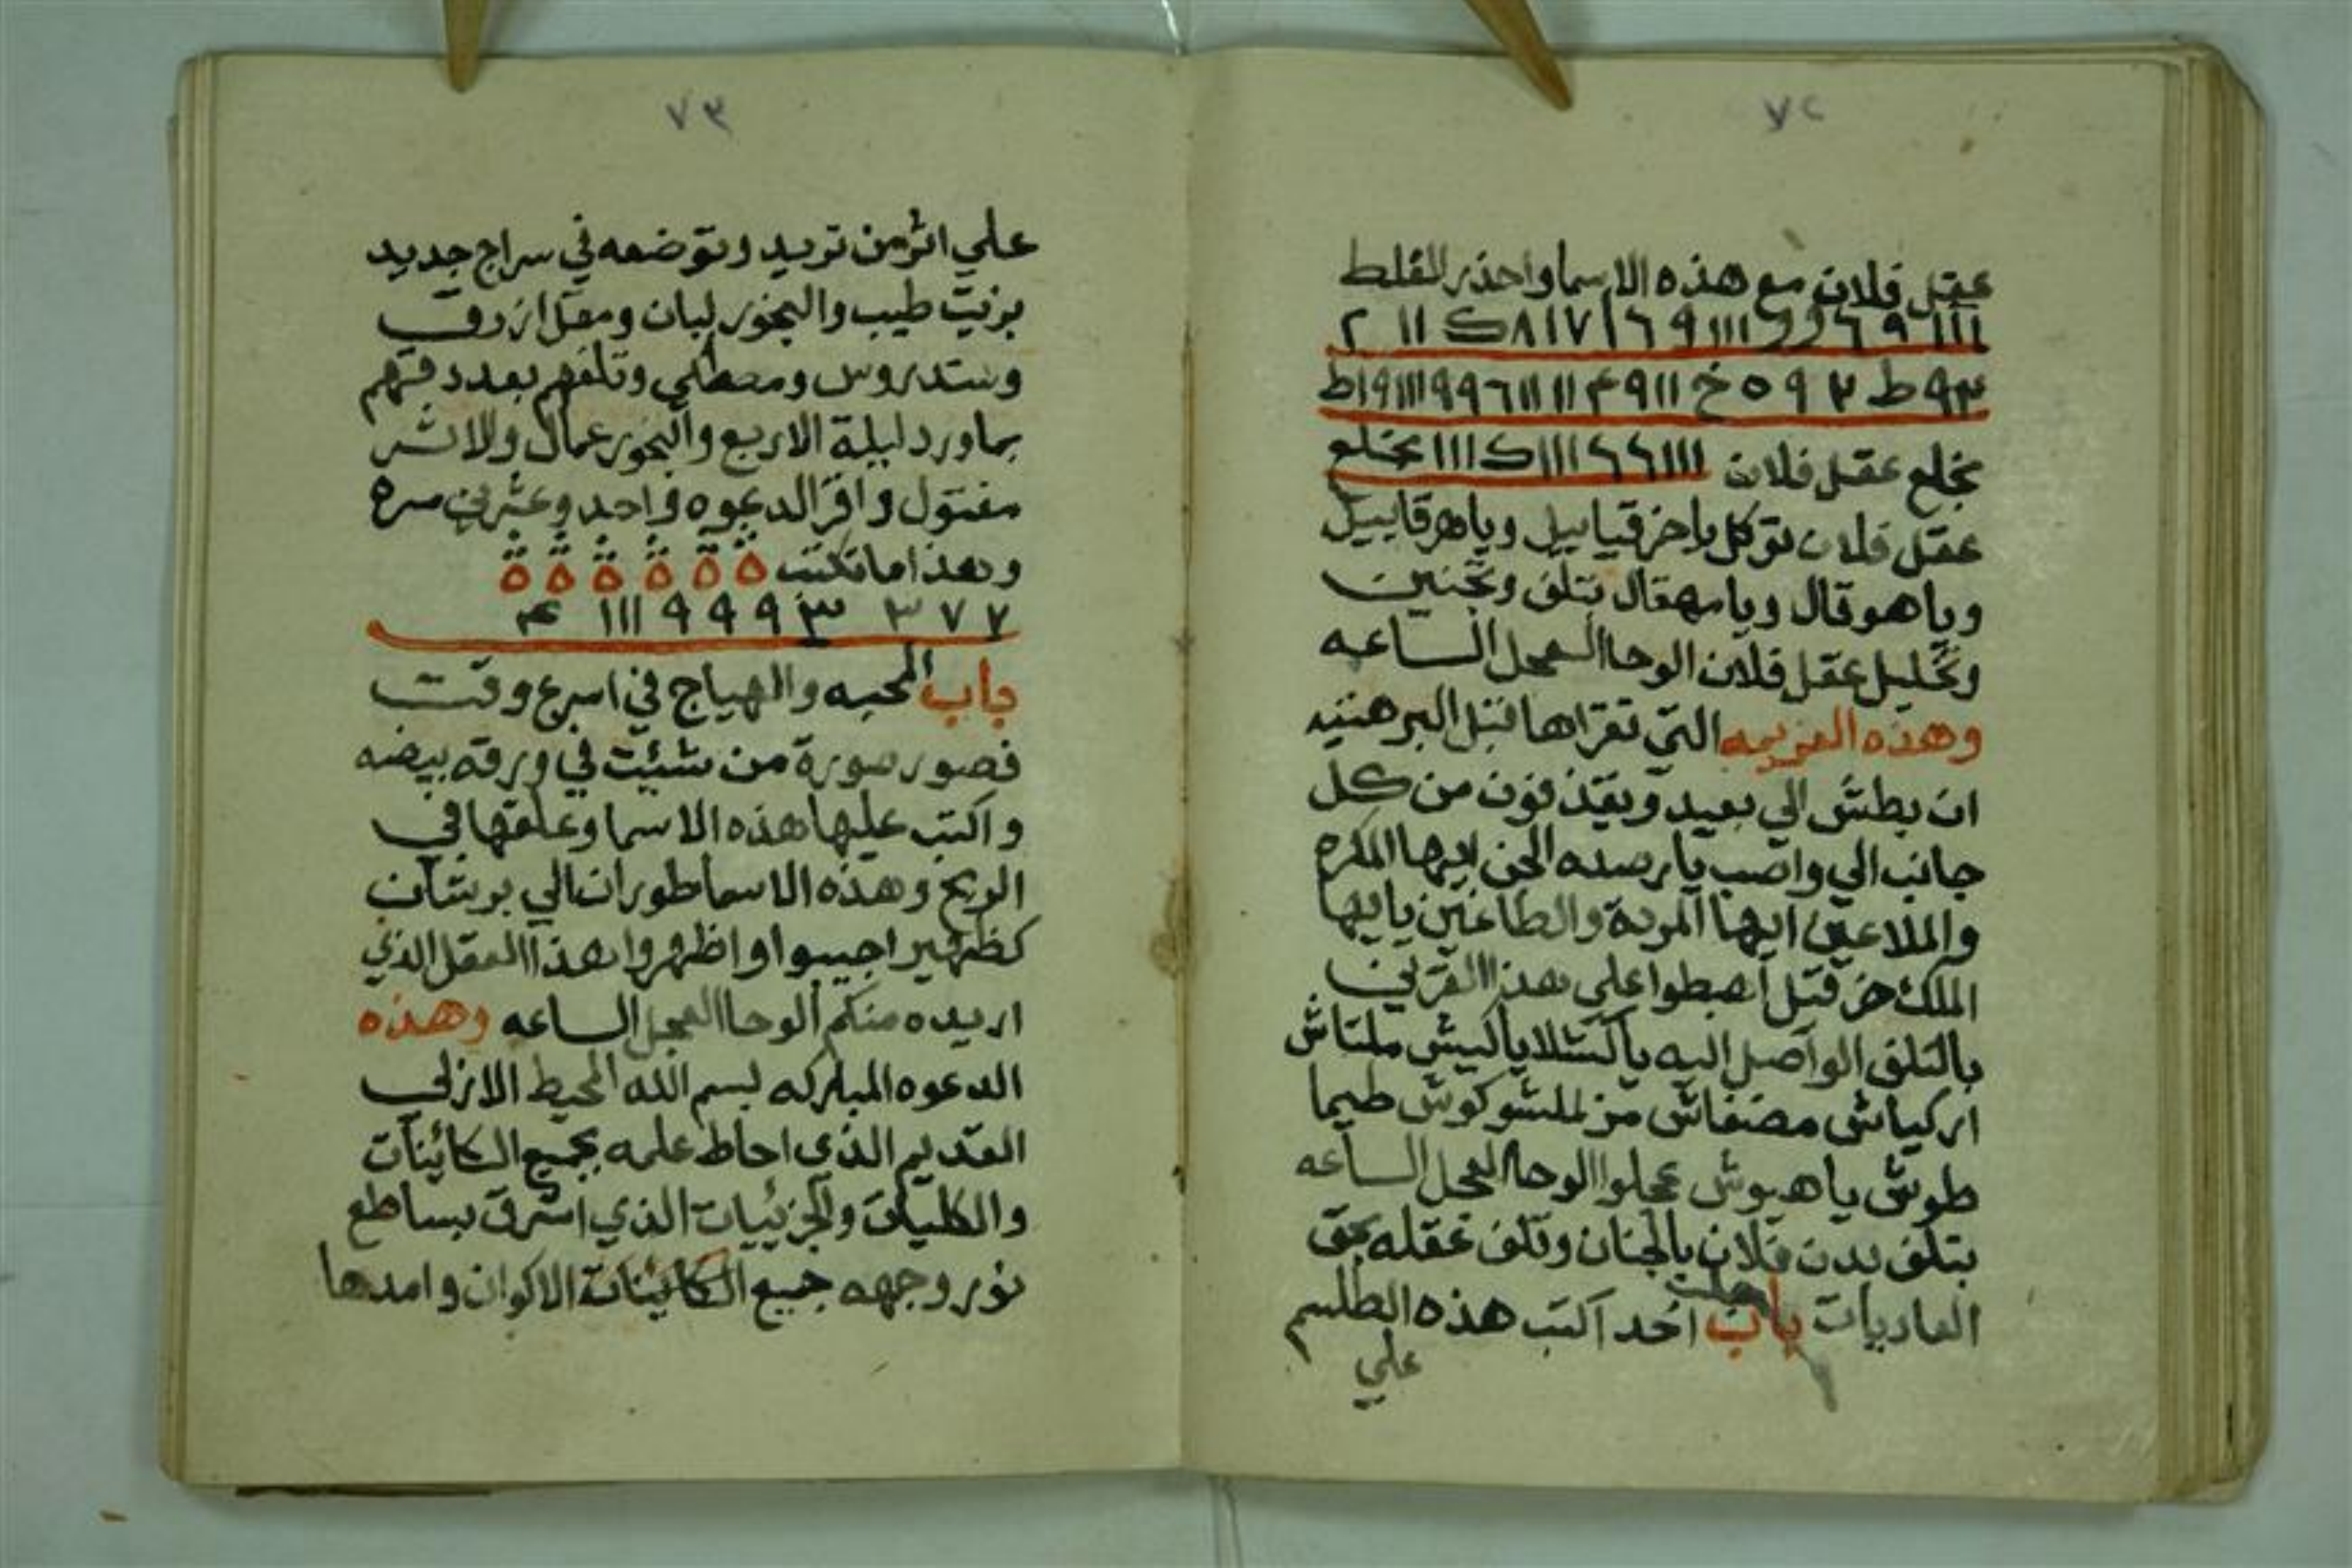 ٧٢
عقل فلان مع هذه الاسما واحذر الغلط
١١١ ٩ ٦ و و ١١١ ٩ ٦ ١ ٧ ١ ٨ ك ١١ ٢
٩٣ ط ٣ ٩ ٥ خ ١١ ٩ ٤ ١١ ١١١ ٦ ٩ ٩ ١١١ ٩ ١ ط
بخلع عقل فلان ١١١ ٦ ٦ ١١١ ك ١١١ بخلع
عقل فلان توكل يا حزقياييل وياهرقاييل
وياهوقال ويا مهقال بتلف وتجنين
وتخليل عقل فلان الوحا العجل الساعه
وهذه العزيمه التي تقراها قبل البرهتيه
ان بطش الي بعيد ويقذفون من كل
جانب الي واصب يا رصده الجن ايها المكره
والملاعين ايها المردة والطاغين يا ايها
الملك اهبطوا علي هذا القرين
بالتلف الواصل اليه يا كشلا يا كيش ملتاش
اركياش مصنفاش طيما
طوش يا هيوش عجلوا الوحا العجل الساعه
بتلف بدن فلان بالجنان وتلف عقله بحق
العاديات باب جلب احد اكتب هذه الطلسم
علي
٧٣
علي اثر من تريد وتوضعه في سراج جديد
بزيت طيب والبخور لبان ومقل ازرق
وسندروس ومصطكي وتلغهم بعد دقهم
بماورد ليلة الاربع والبخور عمال والاثر
مفتول واقر الدعوه واحد وعشرين مره
وهذا ما تكتب ة ة ة ة ة ة
٧ ٧ ٣ ٣ ٩ ٩ ٩ ١١١ ٤
باب المحبه والهياج في اسرع وقت
فصور صورة من شئت في ورقه بيضه
واكتب عليها هذه الاسما وعلقها في
الريح وهذه الاسما طوران الي برشان
كظهير اجيبوا واظهروا هذا العقل الذي
اريده منكم الوحا العجل الساعه وهذه
الدعوه المباركه بسم الله المحيط الازلي
القديم الذي احاط علمه بجميع الكائنات
والكليات والجزئيات الذي اشرق بساطع
نور وجهه جميع الكائنات الاكوان وامدها